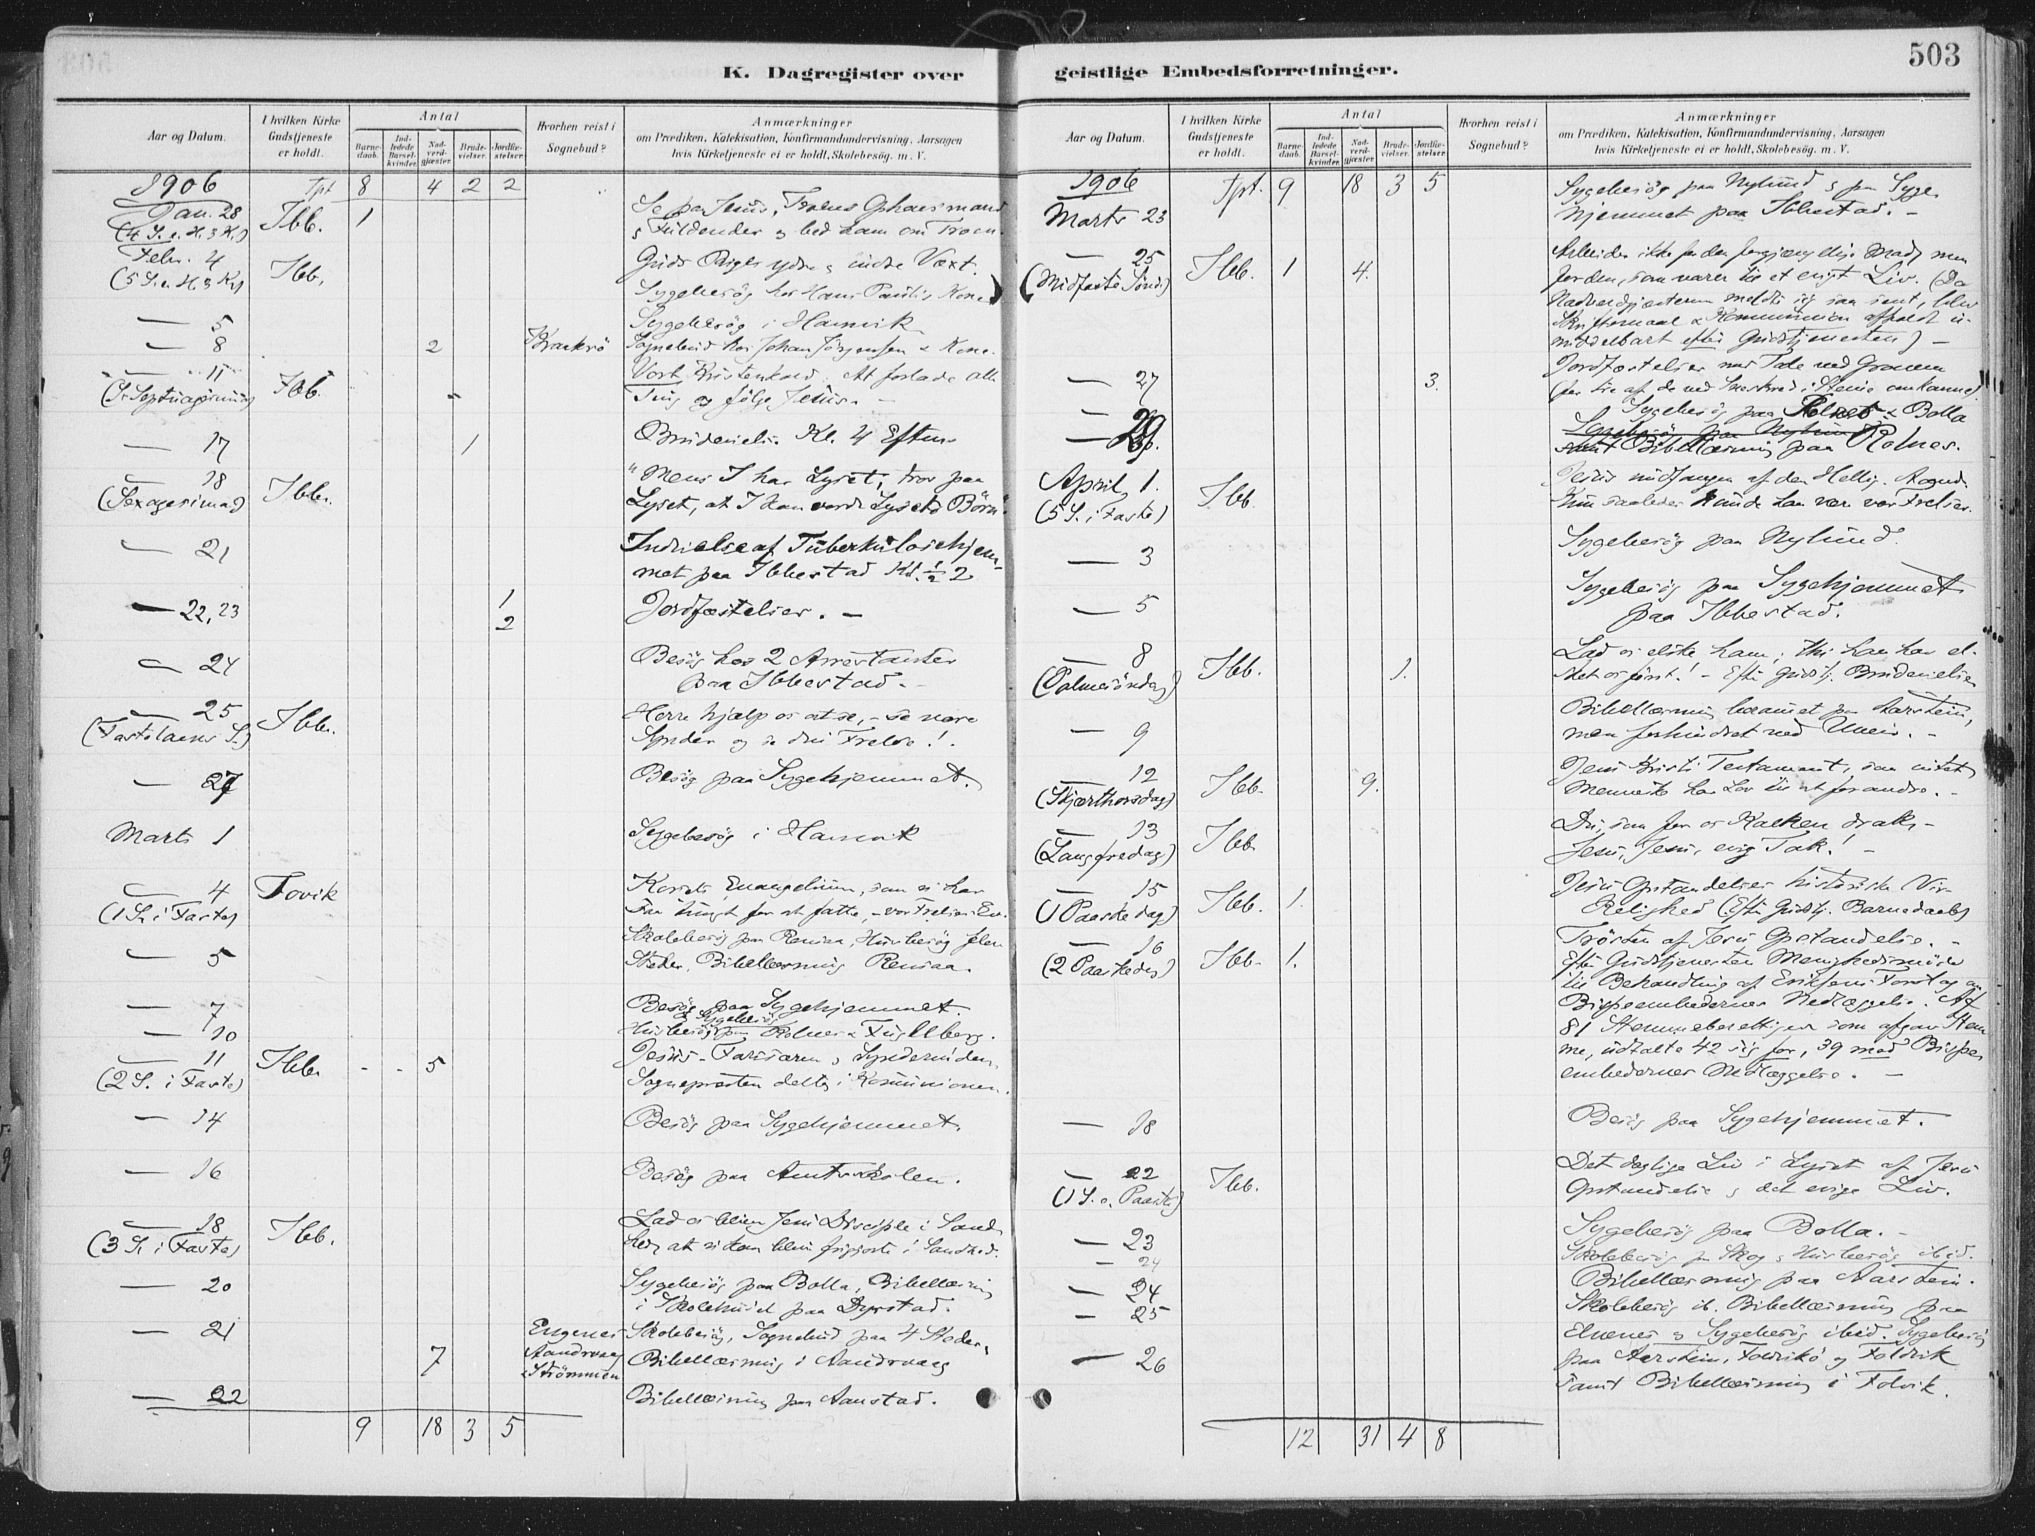 503
K. Dagregister over geistlige Embedsforretninger.
Aar og Datum.
I hvilken Kirke Gudstjeneste er holdt.
Antal
Barnedaab.
Indledede Barselkvinder.
Nadverdgjæster.
Brudevielser.
Jordfæstelser.
Hvorhen reist i Sognebud?
Anmærkninger
om Prædiken, Katekisation, Konfirmandundervisning, Aarsagen
hvis Kirketjeneste ei er holdt, Skolebesøg. m. V.
1906 Tpt 8 4 2 2
Jan. 28 Ibb. 1 Se paa Jesus, Troens Ophavsmand
(4 S. e. H. 3 K.) & Fuldender og bed ham om Troen.
Febr. 4 Ibb. Guds Riges ydre & indre Væxt.
(5 S. e. H. 3 K.) Sygebesøg hos Hans Paulis Kone
— 5 Sygebesøg i Hamvik
— 8 2 Kraakrø Sognebud hos Johan Jørgensen & Kone.
— 11 Ibb. Vort Kristenkald. At forlade alle
(S. Septuagesima) Ting og følge Jesus. —
— 17 1 Brudevielse Kl. 4 Efterm.
— 18 Ibb. "Mens I har Lyset, tror paa
(Sexagesima) Lyset, at I kan vorde Lysets Børn"
— 21 Indvielse af Tuberkulosehjem-
met paa Ibbestad Kl. ½ 2
— 22, 23 1 2 Jordfæstelser. —
— 24 Besøg hos 2 Arrestanter
paa Ibbestad. —
— 25 Ibb. Herre hjælp os at se, – se vore
(Fastelavns S.) Synder og se din Frelse!.
— 27 Besøg paa Sygehjemmet.
Marts 1 Sygebesøg i Hamvik
— 4 Fovik Korsets Evangelium, som vi har
(1 S. i Faste) saa tungt for at fatte, – vor Frelses Ev.
— 5 Skolebesøg paa Rensaa, Husbesøg flere
Steder, Bibellæsning Rensaa.
— 7 Besøg paa Sygehjemmet.
— 10 Husbesøg & Sygebesøg paa Rolnes & Fuglberg.
— 11 Ibb. - - 5 Jesus – Farisæren & Synderinden
(2 S. i Faste) Sognepræsten deltog i Kommunionen.
— 14 Besøg paa Sygehjemmet.
— 16 Besøg paa Amtsskolen.
— 18 Ibb. Lad os blive Jesu Disciple i Sand-
(3 S. i Faste) hed, at vi kan blive frigjorte i Sandhed.
— 20 Sygebesøg paa Bolla, Bibellæsning
i Skolehuset paa Dyrstad.
— 21 7 Engenes Aandervaag & Strømmen Skolebesøg, Sognebud paa 4 Steder,
Bibellæsning i Aandervaag
— 22 Bibellæsning paa Aanstad.
9 18 3 5
Aar og Datum.
I hvilken Kirke Gudstjeneste er holdt.
Antal
Barnedaab.
Indledede Barselkvinder.
Nadverdgjæster.
Brudevielser.
Jordfæstelser.
Hvorhen reist i Sognebud?
Anmærkninger
om Prædiken, Katekisation, Konfirmandundervisning, Aarsagen
hvis Kirketjeneste ei er holdt, Skolebesøg. m. V.
1906 Tpt. 9 18 3 5 Sygebesøg paa Nylund & paa Syge-
Marts 23 hjemmet paa Ibbestad. —
— 25 Ibb. 1 4. Arbeider ikke for den forgjængelige Mad, men
(Midfaste Sønd.) for den, som varer til et evigt Liv. (Da
Nadverdgjæsterne meldte sig saa sent, blev
Skriftemaal & Kommunion afholdt u-
middelbart efter Gudstjenesten) —
— 27 3. Jordfæstelser med Tale ved Graven
— 29 Sygebesøg paa Rolnes & Bolla
samt Bibellæsning paa Rolnes.
April 1. Ibb Jesus undfangen af den Hellig. Aand.
(5 S. i Faste) Kun saaledes kunde han være vor Frelser.
— 3 Sygebesøg paa Nylund.
— 5 Sygebesøg paa Sygehjemmet
paa Ibbestad.
— 8 Ibb. 1. Lad os elske ham, thi han har el-
(Palmesøndag) sket os først! – Efter Gudstj. Brudevielse
— 9 Bibellæsning berammet paa Aarstein,
men forhindret ved Uveir. —
— 12 Ibb. 9. Jesu Kristi Testament, som intet
(Skjærthorsdag) Menneske har Lov til at forandre. —
— 13 Ibb Du, som for os Kalken drak –
(Langfredag) Jesu, Jesu, evig Tak! —
— 15 Ibb. 1. Jesu Opstandelses historiske Vir-
(1 Paaskedag) kelighed (Efter Gudstj. Barnedaab)
— 16 Ibb. 1. Trøsten af Jesu Opstandelse. —
(2 Paaskedag) Efter Gudstjenesten Menighedsmøde
til Behandling af Eriksens Forslag om
Bispeembedernes Nedlæggelse. Af
81 Stemmeberettigede som afgav Stem-
me, udtalte 42 sig for, 39 mod Bispe-
embedernes Nedlæggelse. —
— 18 Besøg paa Sygehjemmet.
— 22 Ibb. Det daglige Liv i Lyset af Jesu
(1 S. e. Paaske) Opstandelse & det evige Liv.
— 23 Sygebesøg paa Bolla. —
— 24 Skolebesøg paa Skog & Husbesøg ibid.
— 24 Bibellæsning paa Aarstein.
— 25 Skolebesøg ib. Bibellæsning paa
Elvenes & Sygebesøg ibid. Sygebesøg
— 26 paa Aarstein, Foldvik & Foldvik
samt Bibellæsning i Folvik.
12 31 4 8